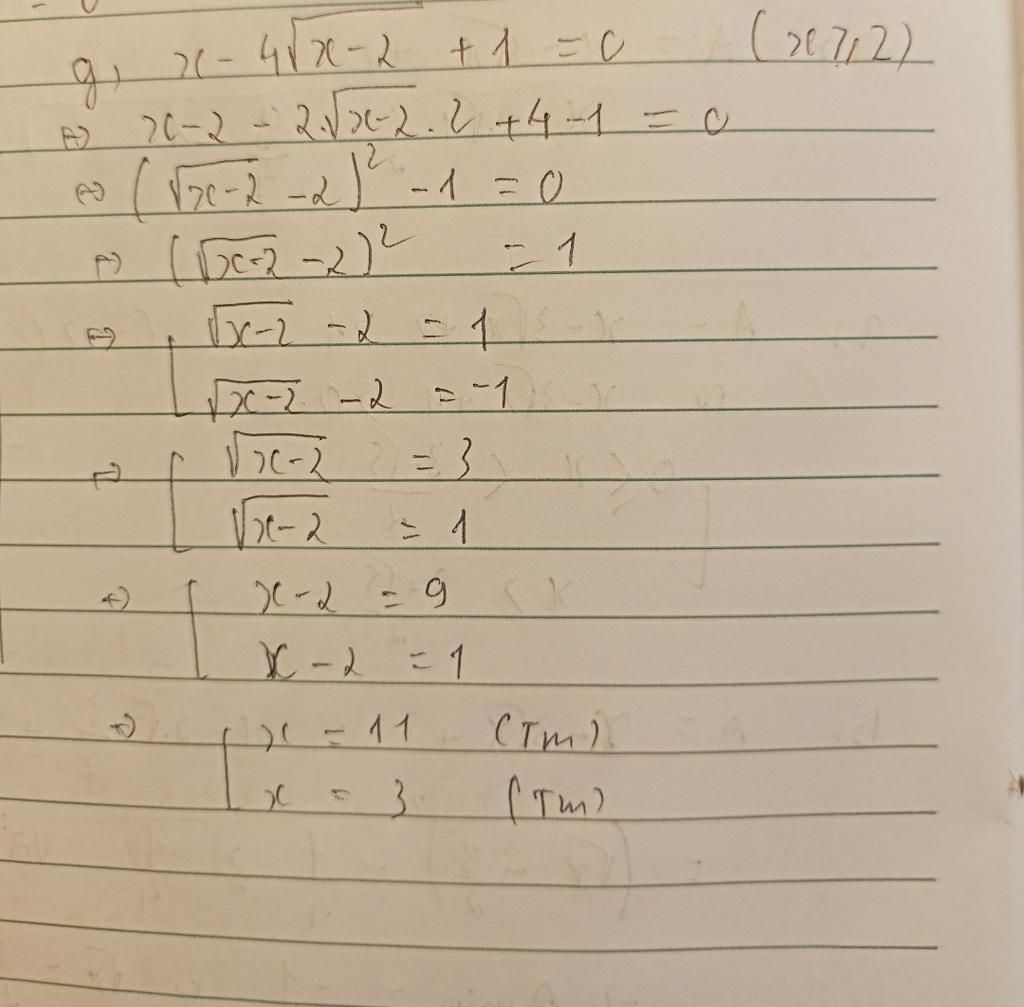 g, x - 4√(x-2) + 1 = 0 (x ≥ 2)
⇔ x-2 - 2.√(x-2) . 2 + 4 - 1 = 0
⇔ (√(x-2) - 2)² - 1 = 0
⇔ (√(x-2) - 2)² = 1
⇔ [ √(x-2) - 2 = 1
√(x-2) - 2 = -1
⇔ [ √(x-2) = 3
√(x-2) = 1
⇔ [ x - 2 = 9
x - 2 = 1
⇔ [ x = 11 (Tm)
x = 3 (Tm)